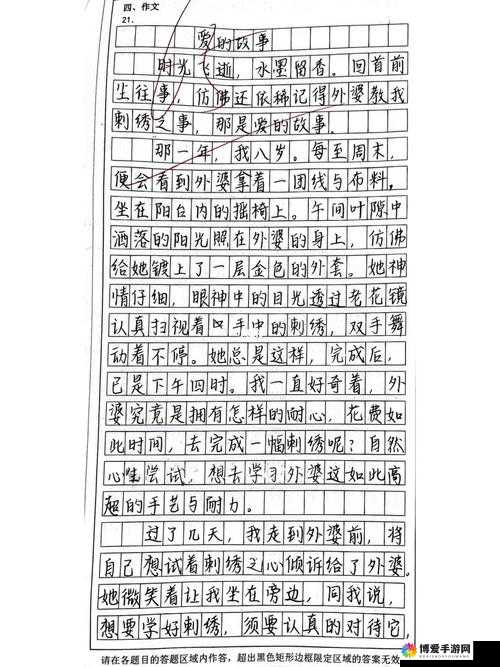 四、作文
21.
爱的故事
时光飞逝，水墨留香。回首前
尘往事，仿佛还依稀记得外婆教我
刺绣之事，那是爱的故事。
那一年，我八岁。每至周末，
便会看到外婆拿着一团线与布料，
坐在阳台内的摇椅上。午间叶隙中
洒落的阳光照在外婆的身上，仿佛
给她镀上了一层金色的外套。她神
情仔细，眼神中的目光透过老花镜
认真扫视着手中的刺绣，双手舞
动着不停。她总是这样，完成后，
已是下午四时。我一直好奇着，外
婆究竟是拥有怎样的耐心，花费如
此时间，去完成一幅刺绣呢？自然
心生尝试，想去学习外婆这如此高
超的手艺与耐力。
过了几天，我走到外婆前，将
自己想试着刺绣之心倾诉给了外婆。
她微笑着让我坐在旁边，同我说，
想要学好刺绣，须要认真的对待它，
请在各题目的答题区域内作答，超出黑色矩形边框限定区域的答案无效
博爱手游网